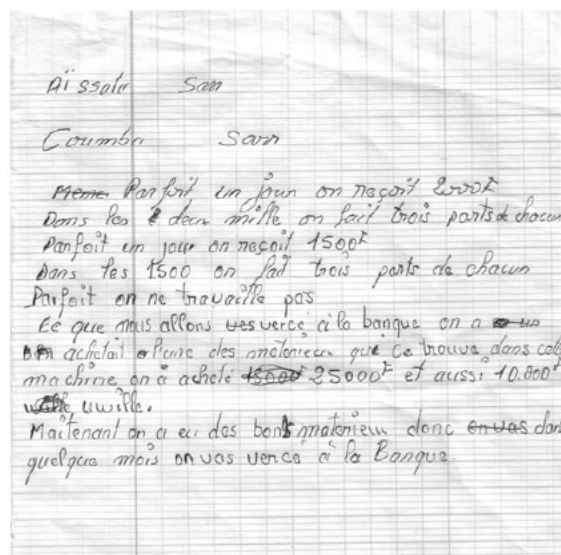 Aïssata Sarr
Coumba Sarr
Meme Parfoit un jour on reçoit 2000F
Dans les deux mille on fait trois parts de chacun
Parfoit un jour on reçoit 1500F
Dans les 1500 on fait trois parts de chacun
Parfoit on ne travaille pas
Ce que nous allons vercé à la banque on a
achetait des matérieux qui ce trouve dans cett
machine on à acheté 15000F 25000F et aussi 10.800F
uwille.
Maitenant on a eu des bons matérieux donc on vas dan
quelque mois on vas vercé à la Banque.